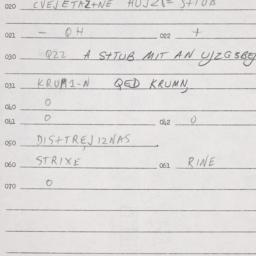 020 CVEJETAZ+NE HUJZ= S+TUB
021 - QH 022 +
030 Q22 A S+TUB MIT AN UJZGSBEJ
031 KRUM1-N QED KRUMN,
040 0
041 0 042 0
050 DIS+TREJ12NAS
060 STRIXE 061 RINE
070 0